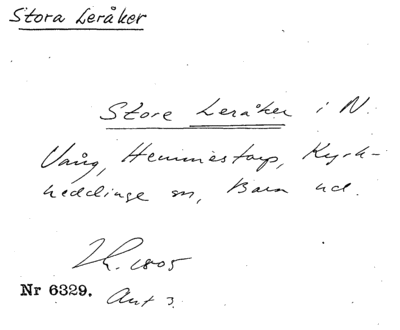 Stora Leråker
Store Leråker i N.
Vång, Hemmestorp, Kyrk-
heddinge sn, Bara hd.
1805
Nr 6329. Akt 3.